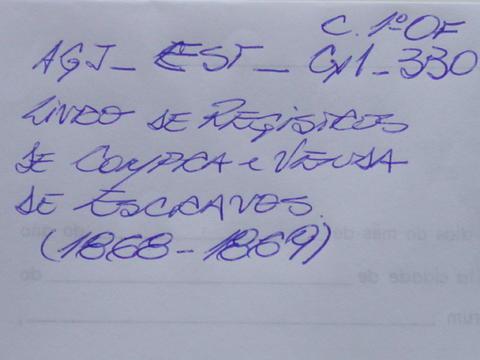 C. 1º OF
AGJ_ EST_ Cx1_330
LIVRO DE REGISTROS
DE COMPRA e VENDA
DE ESCRAVOS.
(1868-1869)
dias do mês de do ano
da cidade de do
rum